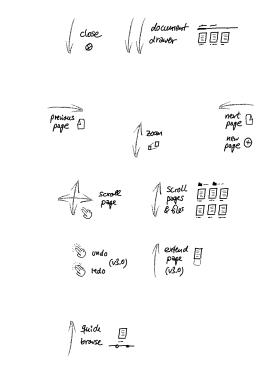 close
document
drawer
previous
page
next
page
zoom
new
page
scroll
page
scroll
pages
& files
undo
(v3.0)
redo
extend
page
(v3.0)
quick
browse